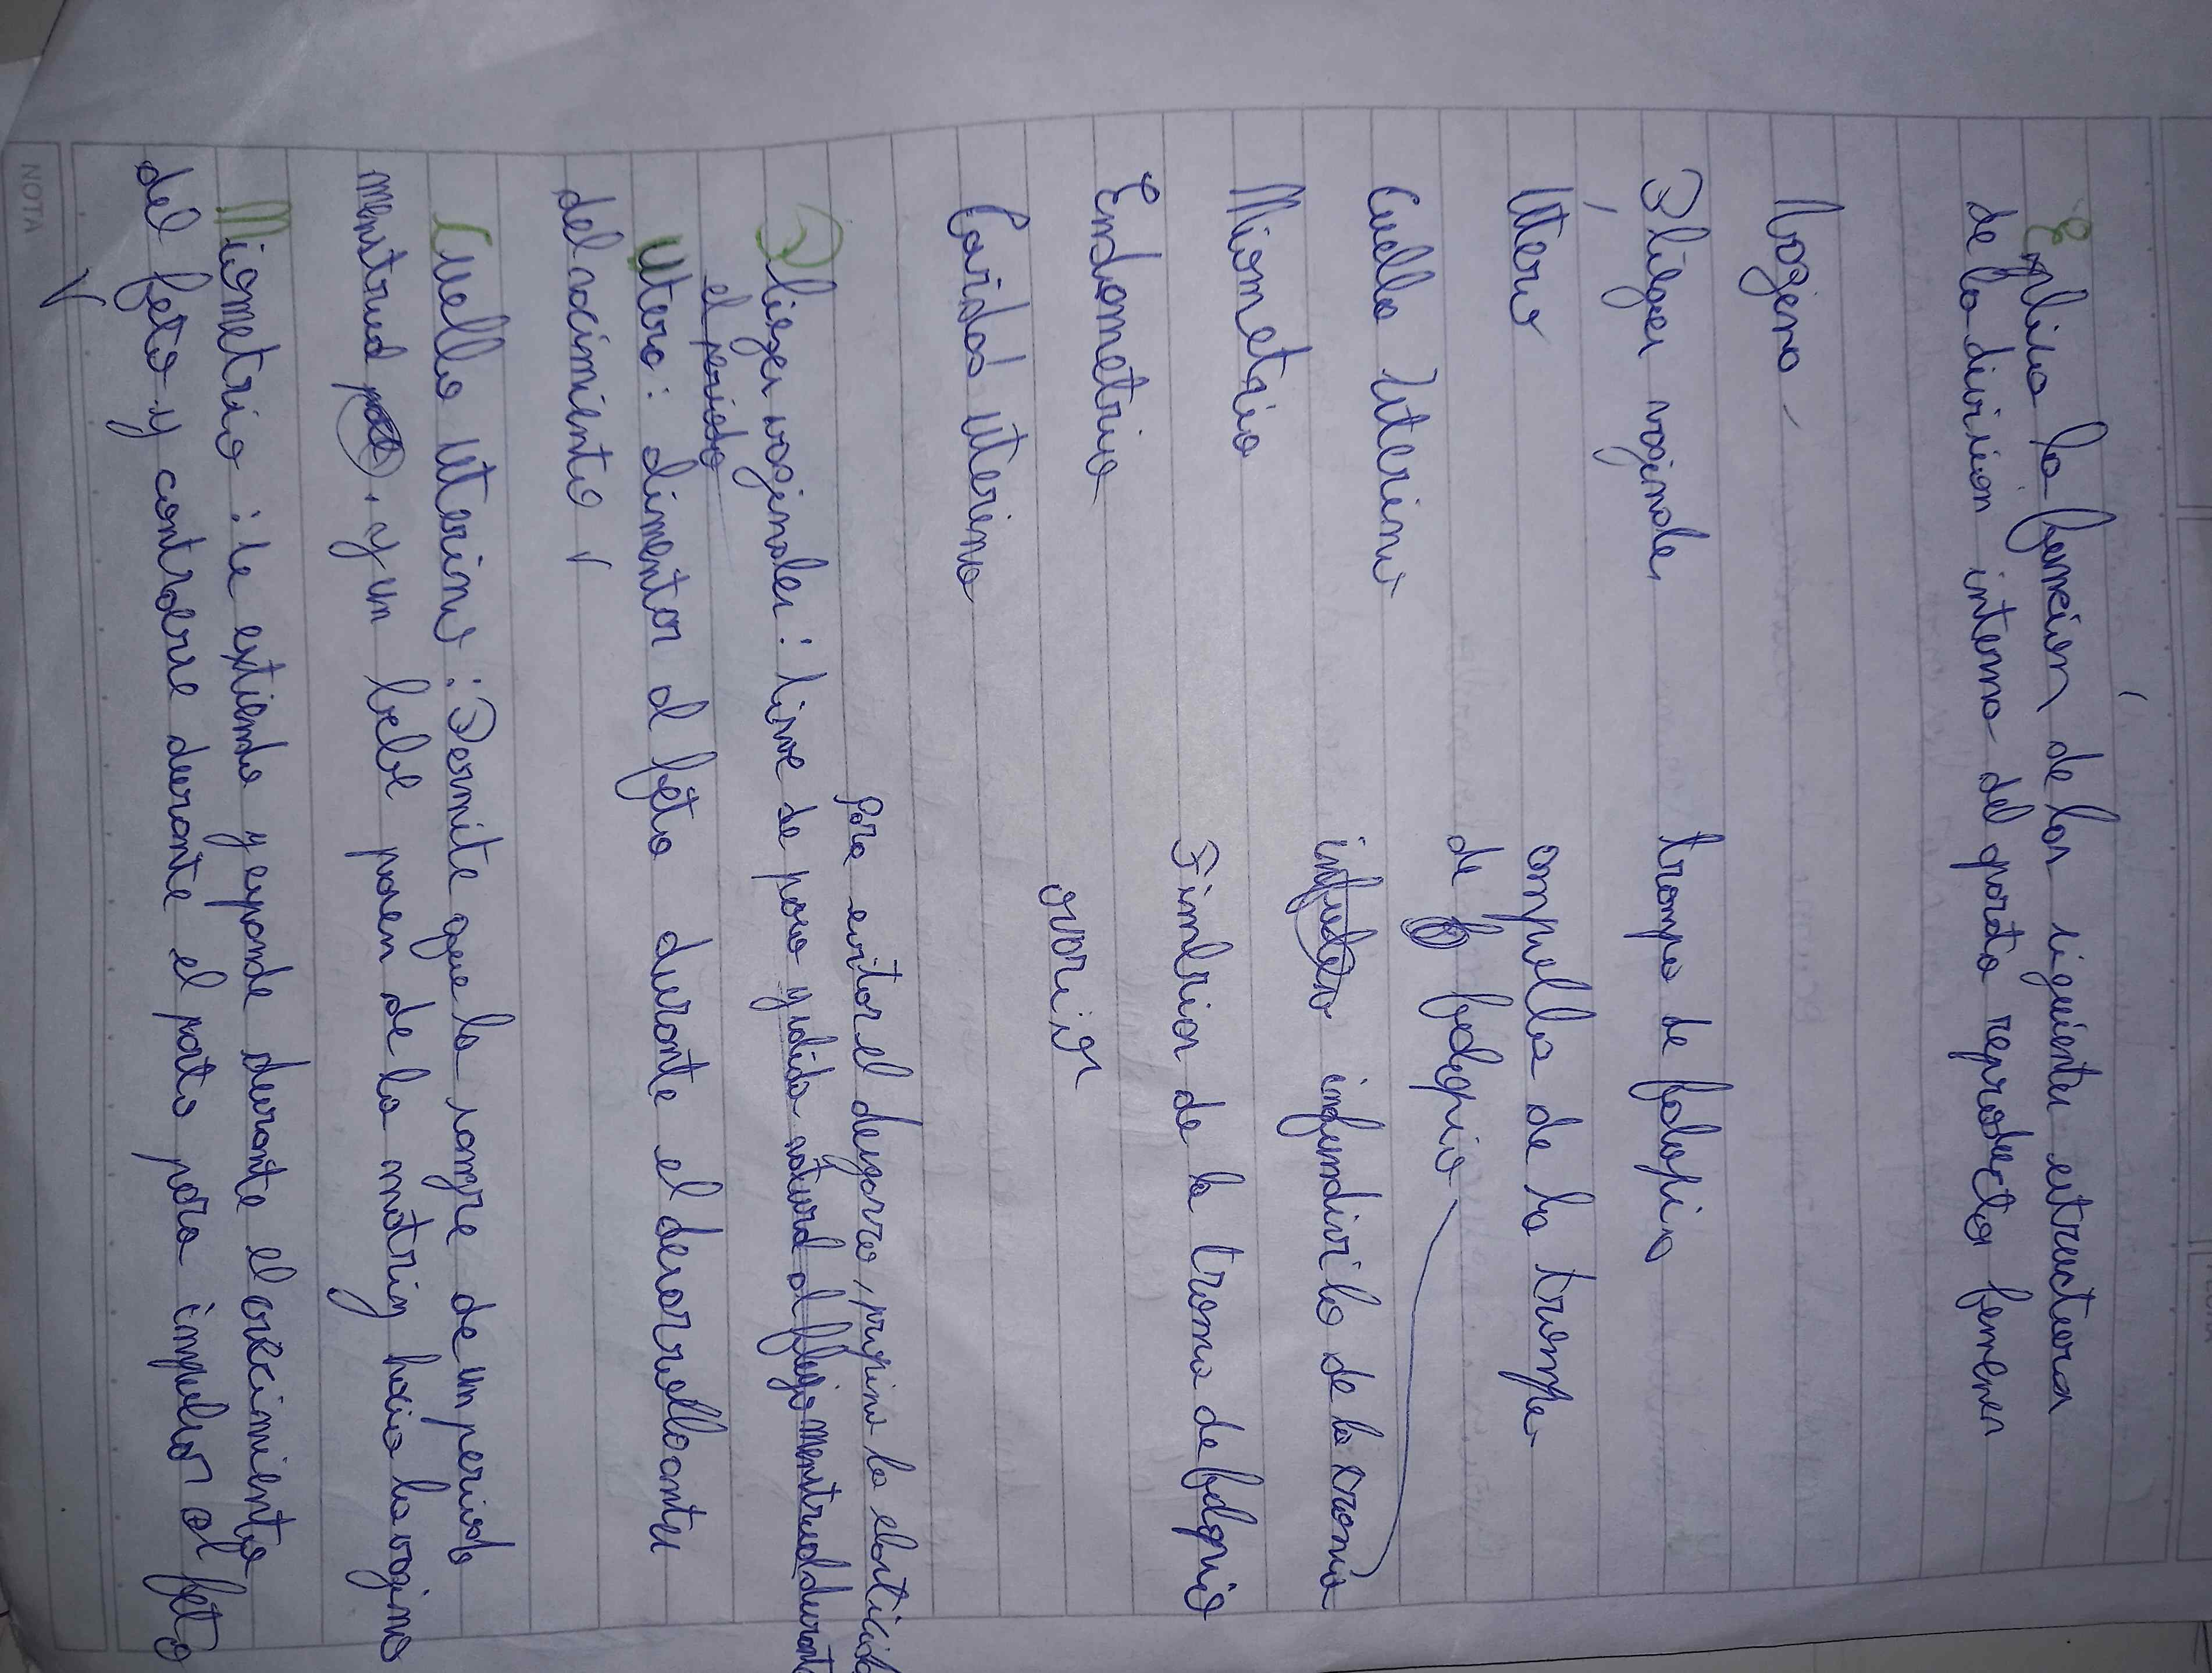 Explica la funcion de las siguientes estructuras
de la division interna del aparato reproductor femenin
Vagina
Pliges vaginales
trompa de falopio
Utero
ampolla de la trompa
de falopio
Cuello Uterino
infundivilo de la
Miometrio
Fimbrias de la troma de falopio
Endometrio
ovarios
Cavidad uterina
para evitar el desgarro, propina la elasticida
Pliges vaginales: sirve de paso y salida natural al flujo menstrual durant
el periodo
Utero: alimentar al feto durante el desarrollo antes
del nacimiento
Cuello uterino: Permite que la sangre de un periodo
menstrual y un bebe pasen de la matriz hacia la vagina
Miometrio: se extiende y expande durante el crecimiento
del feto y contraerse durante el parto para impulsar al feto
NOTA